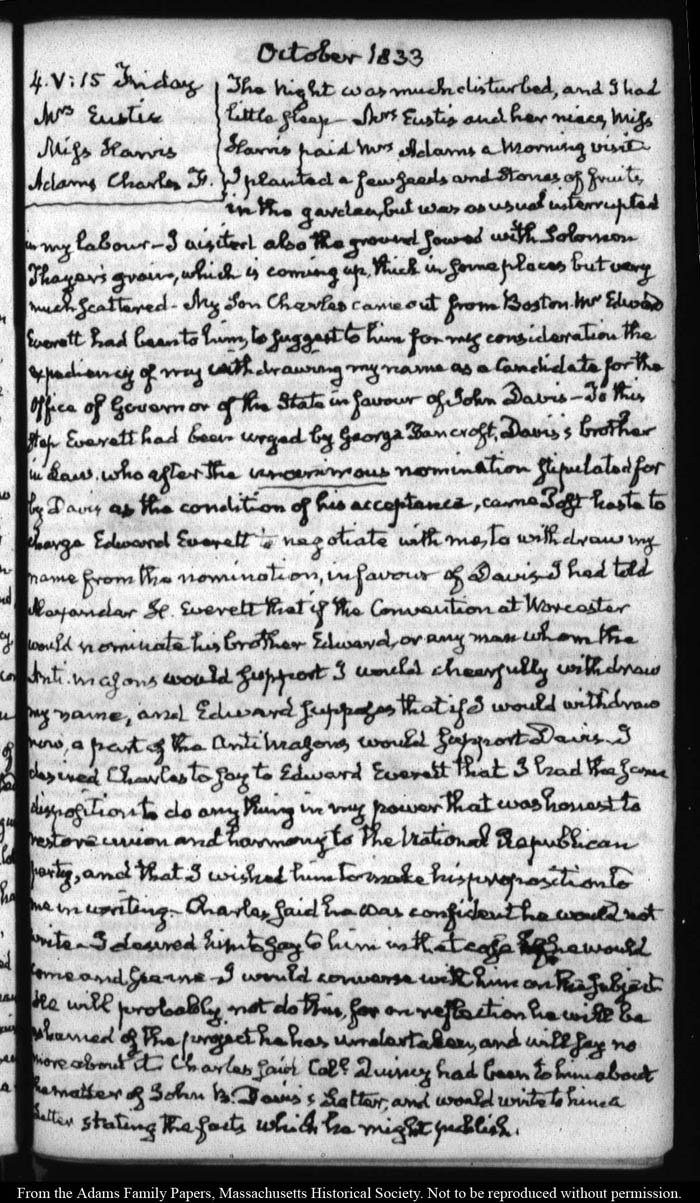 October 1833
4. V:15 Friday
Mrs Eustis
Miss Harris
Adams Charles F.
The night was much disturbed, and I had
little sleep — Mrs Eustis and her niece, Miss
Harris paid Mrs Adams a morning visit
I planted a few seeds and stones of fruits
in the garden, but was as usual interrupted
in my labour — I visited also the ground sowed with Solomon
Thayer's grain, which is coming up, thick in some places but very
much scattered — My Son Charles came out from Boston. Mr Edward
Everett had been to him, to suggest to him for my consideration the
expediency of my withdrawing my name as a Candidate for the
Office of Governor of the State in favour of John Davis — To this
step Everett had been urged by George Bancroft, Davis's brother
in Law. who after the unanimous nomination stipulated for
by Davis as the condition of his acceptance, came Post haste to
charge Edward Everett to negotiate with me, to withdraw my
name from the nomination, in favour of Davis. I had told
Alexander H. Everett that if the Convention at Worcester
would nominate his brother Edward, or any man whom the
Anti-masons would support I would cheerfully withdraw
my name, and Edward supposes that if I would withdraw
now, a part of the Antimasons would support Davis. I
desired Charles to say to Edward Everett that I had the same
disposition to do any thing in my power that was honest to
restore union and harmony to the National Republican
party, and that I wished him to make his proposition to
me in writing — Charles said he was confident he would not
write — I desired him to say to him in that case if he would
come and see me — I would converse with him on the subject
He will probably not do this, for on reflection he will be
ashamed of the project he has undertaken, and will say no
more about it. Charles said Coll. Quincy had been to him about
the matter of John B. Davis's Letter, and would write to him a
Letter stating the facts which he might publish.
From the Adams Family Papers, Massachusetts Historical Society. Not to be reproduced without permission.